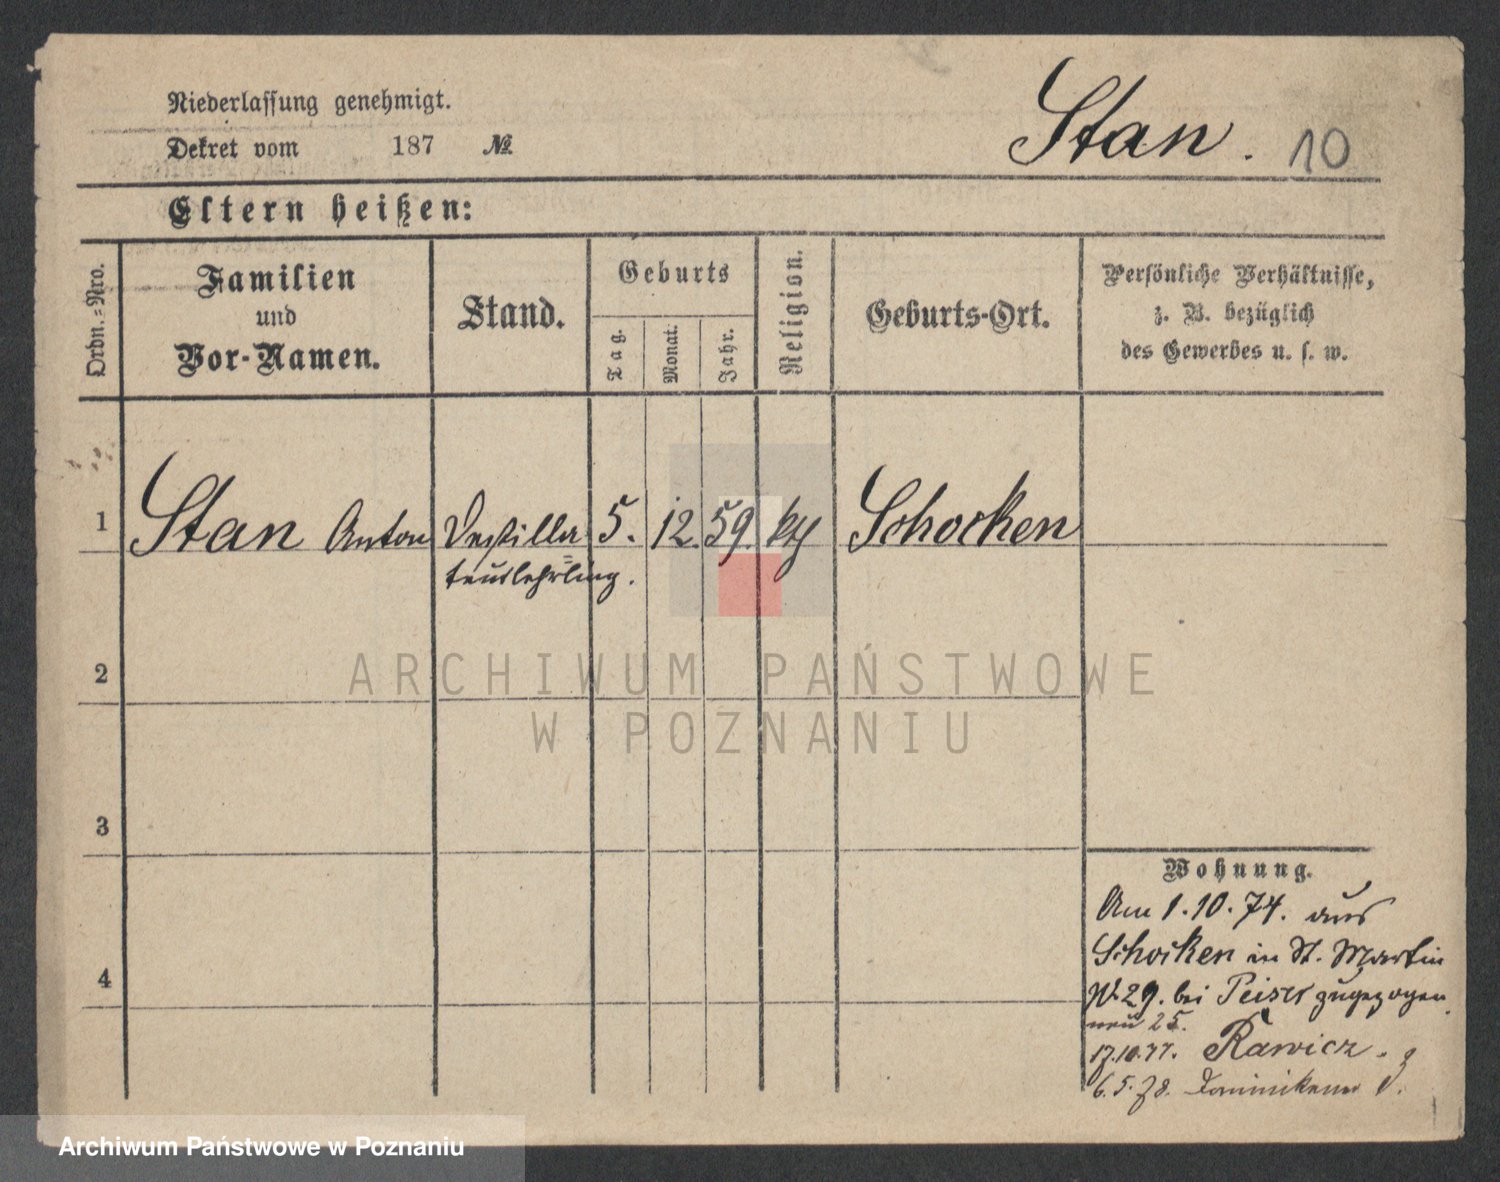 Niederlassung genehmigt.
Dekret vom 187 №
Stan. 10
Eltern heißen:
Ordn.=Nro.
Familien
und
Vor-Namen.
Stand.
Geburts
Tag.
Monat.
Jahr.
Religion.
Geburts-Ort.
Persönliche Verhältnisse,
z. B. bezüglich
des Gewerbes u. s. w.
1 Stan Anton Destilla= 5. 12. 59. kth Schocken
teurlehrling.
2
ARCHIWUM PAŃSTWOWE
W POZNANIU
3
4
Wohnung.
Am 1.10.74. aus
Schocken in St. Martin
№ 29. bei Peiser zugezogen.
neu 25.
17.10.77. Rawicz.
6.5.78. Dominikaner
Archiwum Państwowe w Poznaniu